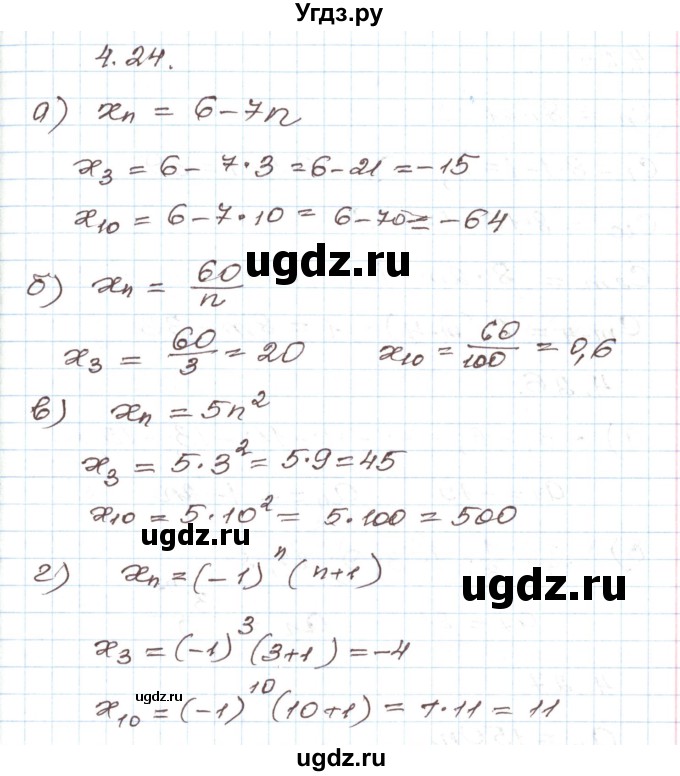 Угдз.ру
4.24.
а) xₙ = 6 - 7n
x₃ = 6 - 7·3 = 6 - 21 = -15
x₁₀ = 6 - 7·10 = 6 - 70 = -64
ugdz.ru
б) xₙ = 60/n
x₃ = 60/3 = 20 x₁₀ = 60/100 = 0,6
в) xₙ = 5n²
x₃ = 5·3² = 5·9 = 45
x₁₀ = 5·10² = 5·100 = 500
ugdz.ru
г) xₙ = (-1)ⁿ(n+1)
ugdz.ru
x₃ = (-1)³(3+1) = -4
ugdz.ru
x₁₀ = (-1)¹⁰(10+1) = 1·11 = 11
ugdz.ru